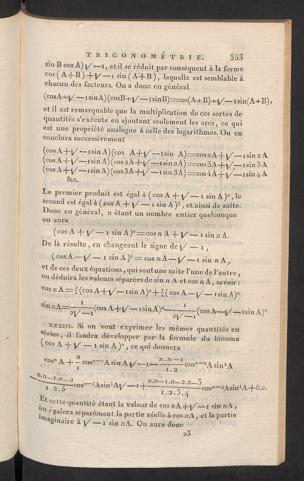 TRIGONOMÉTRIE. 353
sin B cos A) √−1, et il se réduit par conséquent à la forme
cos (A+B)+√−1 sin (A+B), laquelle est semblable à
chacun des facteurs. On a donc en général
(cosA+√−1sinA)(cosB+√−1sinB)=cos(A+B)+√−1sin(A+B),
et il est remarquable que la multiplication de ces sortes de
quantités s'exécute en ajoutant seulement les arcs, ce qui
est une propriété analogue à celle des logarithmes. On en
conclura successivement
(cosA+√−1sinA)(cos A+√−1sin A)=cos2A+√−1sin2A
(cosA+√−1sinA)(cos2A+√−1sin2A)=cos3A+√−1sin3A
(cosA+√−1sinA)(cos3A+√−1sin3A)=cos4A+√−1sin4A
&c.
Le premier produit est égal à (cosA+√−1sinA)², le
second est égal à (cosA+√−1sinA)³, et ainsi de suite.
Donc en général, n étant un nombre entier quelconque
on aura
(cosA+√−1sinA)ⁿ=cosnA+√−1sinnA.
De là résulte, en changeant le signe de √−1,
(cosA−√−1sinA)ⁿ=cosnA−√−1sinnA,
et de ces deux équations, qui sont une suite l'une de l'autre,
on déduira les valeurs séparées de sin nA et cos nA, savoir:
cosnA=½(cosA+√−1sinA)ⁿ+½(cosA−√−1sinA)ⁿ
sinnA=1/2√−1(cosA+√−1sinA)ⁿ−1/2√−1(cosA−√−1sinA)ⁿ
XXXIII. Si on veut exprimer les mêmes quantités en
séries, il faudra développer par la formule du binome
(cosA+√−1sinA)ⁿ, ce qui donnera
cosⁿA+n/1cosⁿ⁻¹AsinA√−1−n.n−1/1.2cosⁿ⁻²Asin²A
−n.n−1.n−2/1.2.3cosⁿ⁻³Asin³A√−1+n.n−1.n−2.n−3/1.2.3.4cosⁿ⁻⁴Asin⁴A+&c.
Et cette quantité étant la valeur de cosnA+√−1sinnA,
on égalera séparément la partie réelle à cosnA, et la partie
imaginaire à √−1 sin nA. On aura donc
23